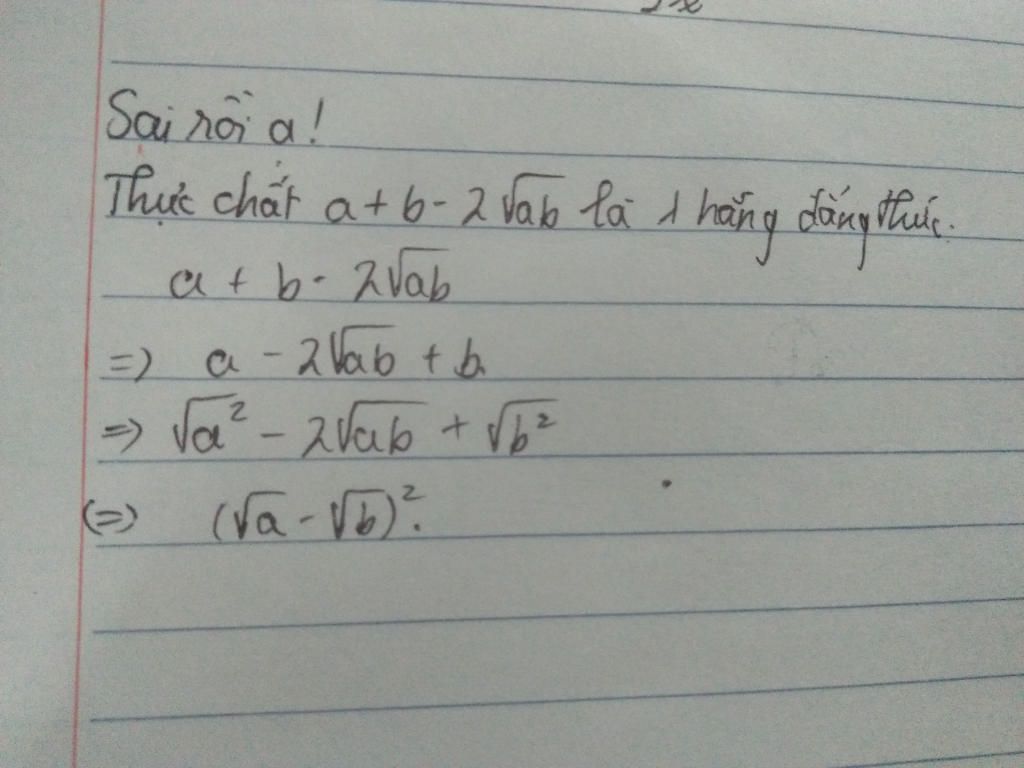 Sai rồi ạ!
Thực chất a + b - 2√ab là 1 hằng đẳng thức.
a + b - 2√ab
=> a - 2√ab + b
=> √a² - 2√ab + √b²
(=> (√a - √b)².